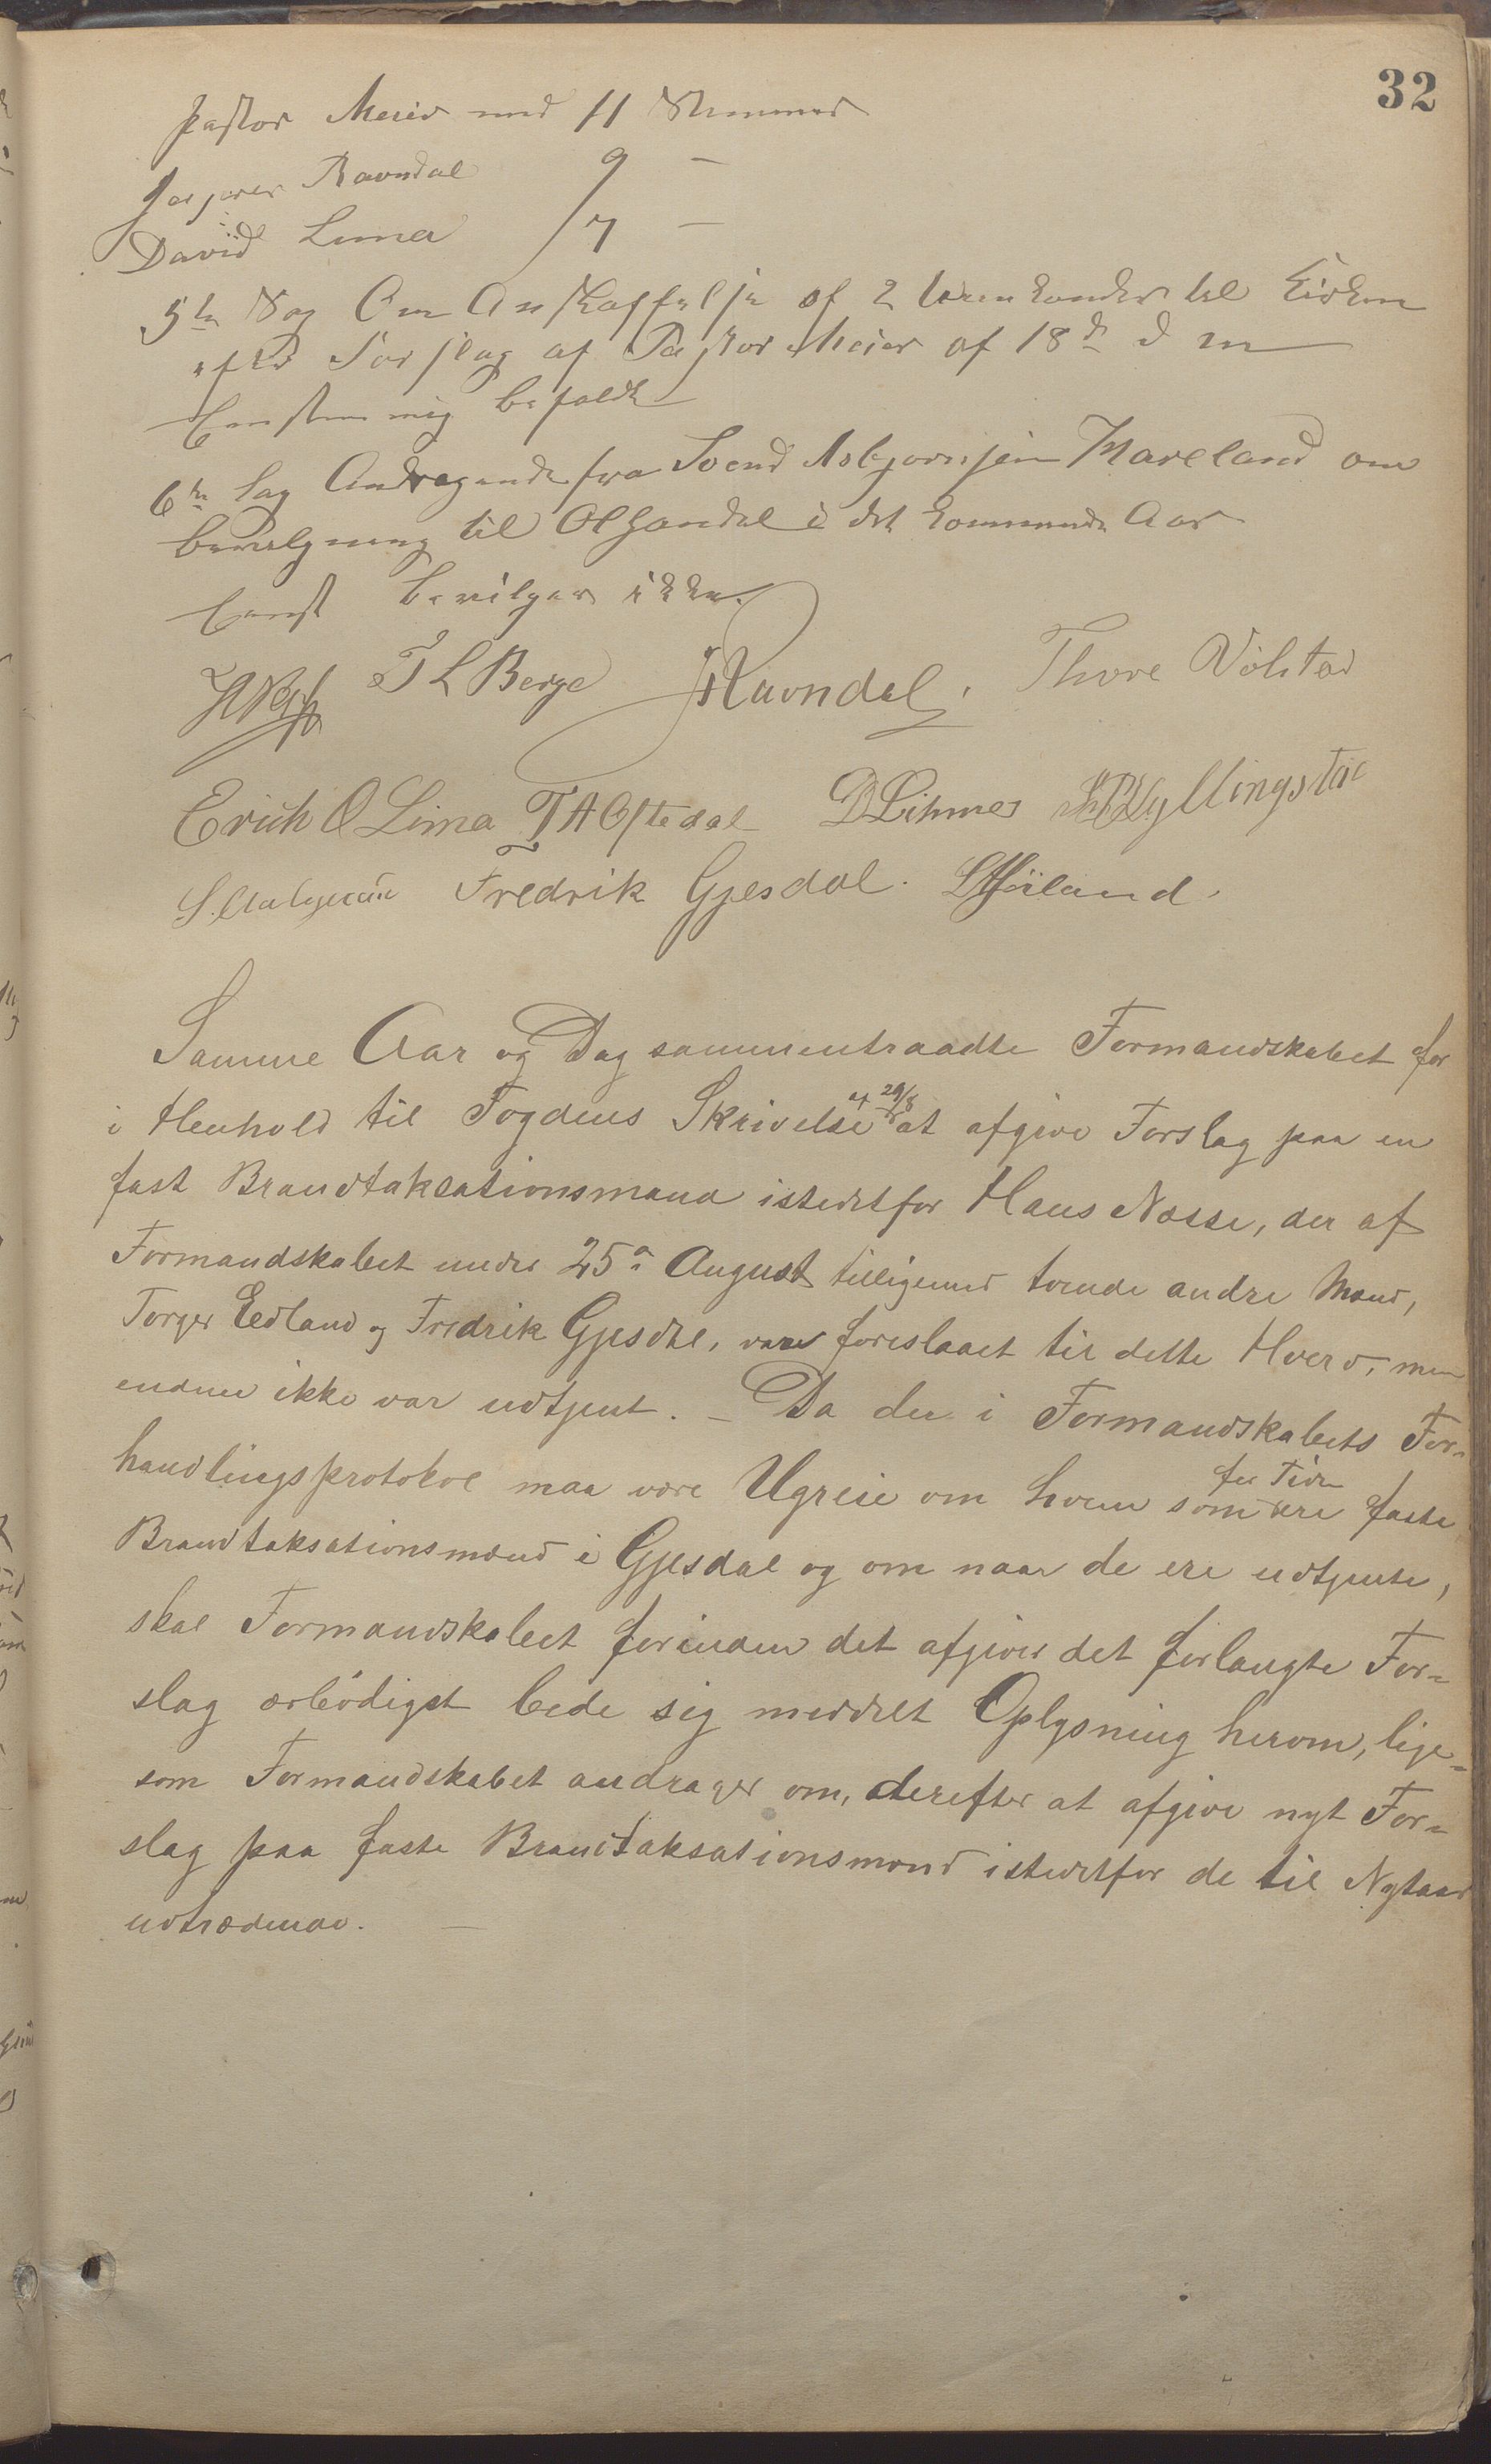 32
Pastor Meier med 11 Stemmer
Jasper Ravndal 9 —
David Lima 7 —
5te Sag Om Anskaffelse af 2 til Kirken
efter Forslag af Pastor Meier af 18d d m
Enstemmig befalet
6te Sag Andragende fra Svend Asbjørnsen Mareland om
bevilgning til Ølhandel i det kommende Aar
Eenst bevilges ikke.
T L Berge JRavndal. Thore Volstad
Erich O Lima T A Oftedal D Limes Kyllingstad
S. Fredrik Gjesdal. Høiland.
Samme Aar og Dag sammentraadte Formandskabet for
i Henhold til Fogdens Skrivelse af 29/8 at afgive Forslag paa en
fast Brandtaksationsmand istedetfor Hans Næsse, der af
Formandskabet under 25de August tilligemed tvende andre Mænd,
Torger Edland og Fredrik Gjesdal, var foreslaaet til dette Hverv, men
endnu ikke var udtjent. — Da der i Formandskabets For-
handlingsprotokol maa være Ugreie om hvem som for Tiden ere faste
Brandtaksationsmænd i Gjesdal og om naar de ere udtjente,
skal Formandskabet forinden det afgiver det forlangte For-
slag ærbødigst bede sig meddelt Oplysning herom, lige-
som Formandskabet andrager om, derefter at afgive nyt For-
slag paa faste Brandtaksationsmænd istedetfor de til Nytaar
udtrædende. —